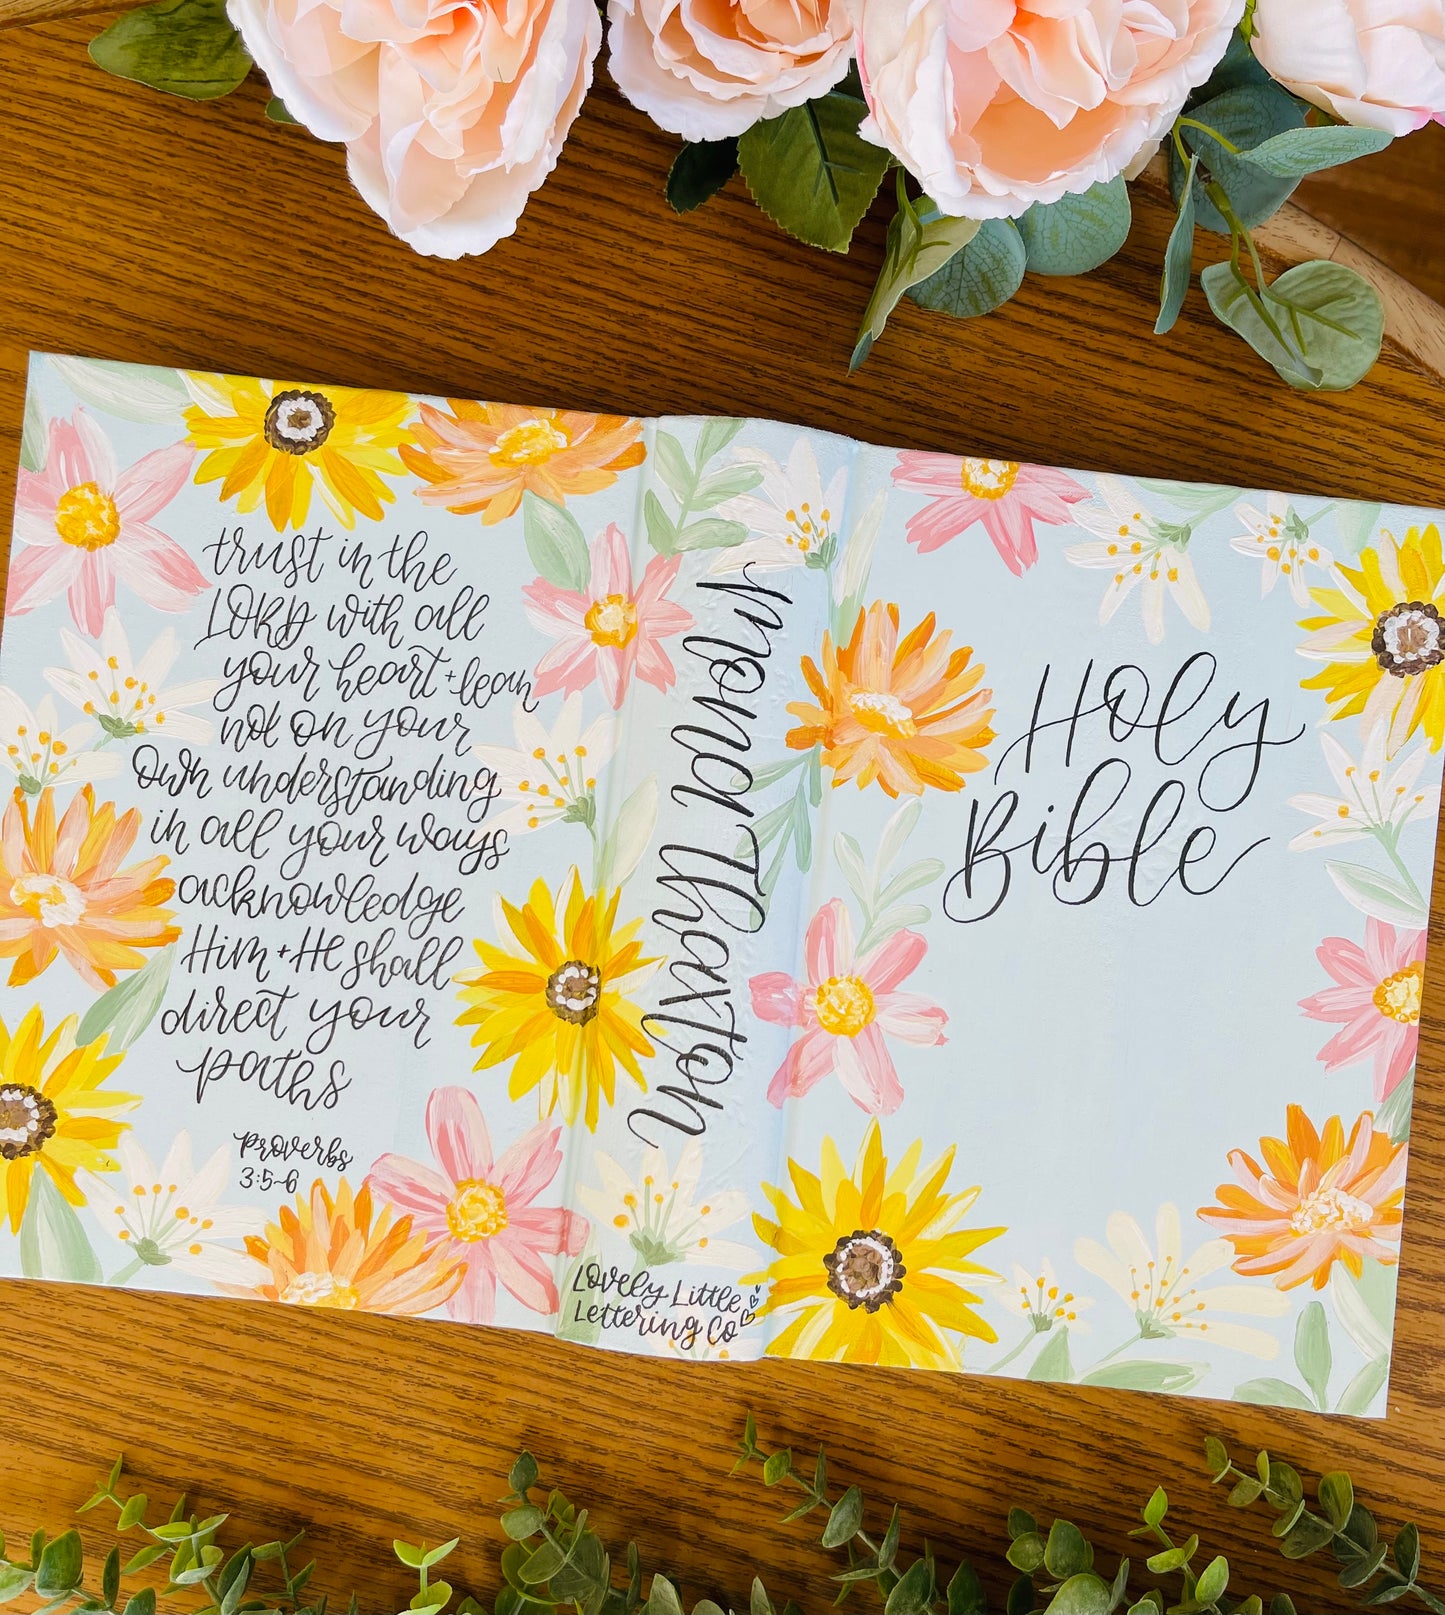 trust in the
LORD with all
your heart + lean
not on your
own understanding
in all your ways
acknowledge
Him + He shall
direct your
paths
Proverbs
3:5~6
Mona Thaxton
Lovely Little
Lettering Co
Holy
Bible